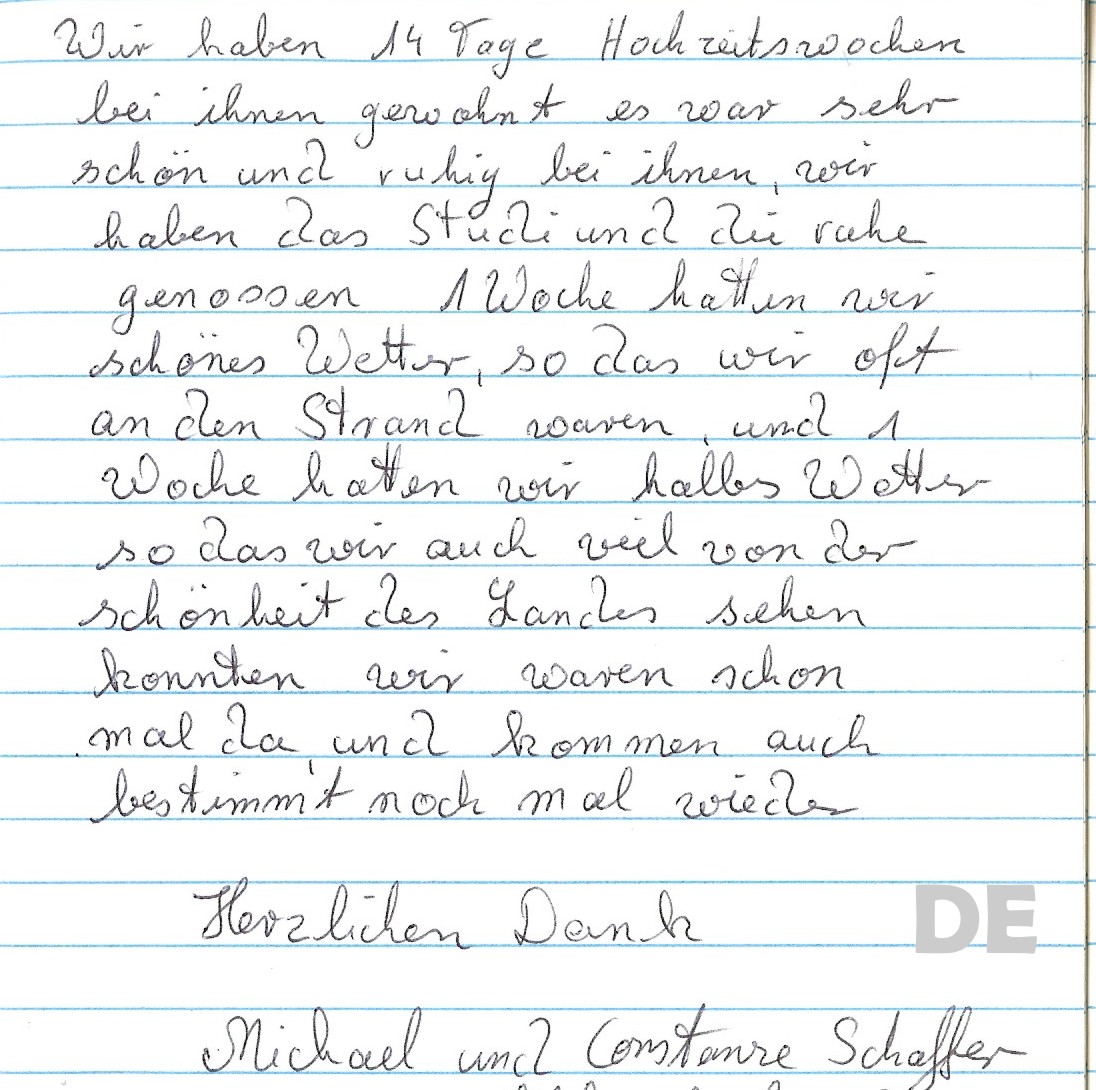 Wir haben 14 Tage Hochzeitswochen
bei ihnen gewohnt es war sehr
schön und ruhig bei ihnen, wir
haben das Studi und die ruhe
genossen 1 Woche hatten wir
schönes Wetter, so das wir oft
an den Strand waren, und 1
Woche hatten wir halbes Wetter
so das wir auch viel von der
schönheit des Landes sehen
konnten wir waren schon
mal da, und kommen auch
bestimmt noch mal wieder
Herzlichen Dank
DE
Michael und Constanze Schaffer